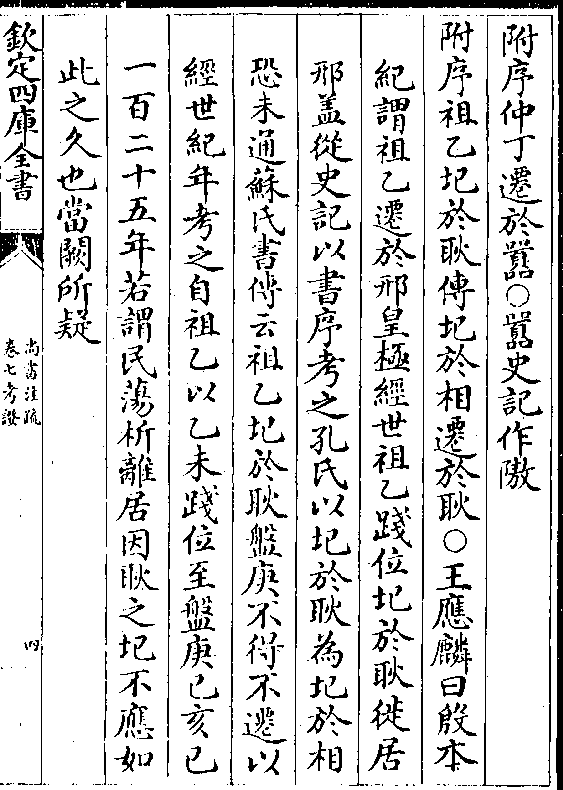 附序仲丁遷於嚻○嚻史記作隞
附序祖乙圮於耿傳圮於相遷於耿○王應麟曰殷本
紀謂祖乙遷於邢皇極經世祖乙踐位圮於耿徙居
邢盖從史記以書序考之孔氏以圮於耿為圮於相
恐未通蘇氏書傳云祖乙圮於耿盤庚不得不遷以
經世紀年考之自祖乙以乙未踐位至盤庚己亥已
一百二十五年若謂民蕩析離居因耿之圮不應如
此之久也當闕所疑
欽定四庫全書
尚書注疏
卷七考證
四